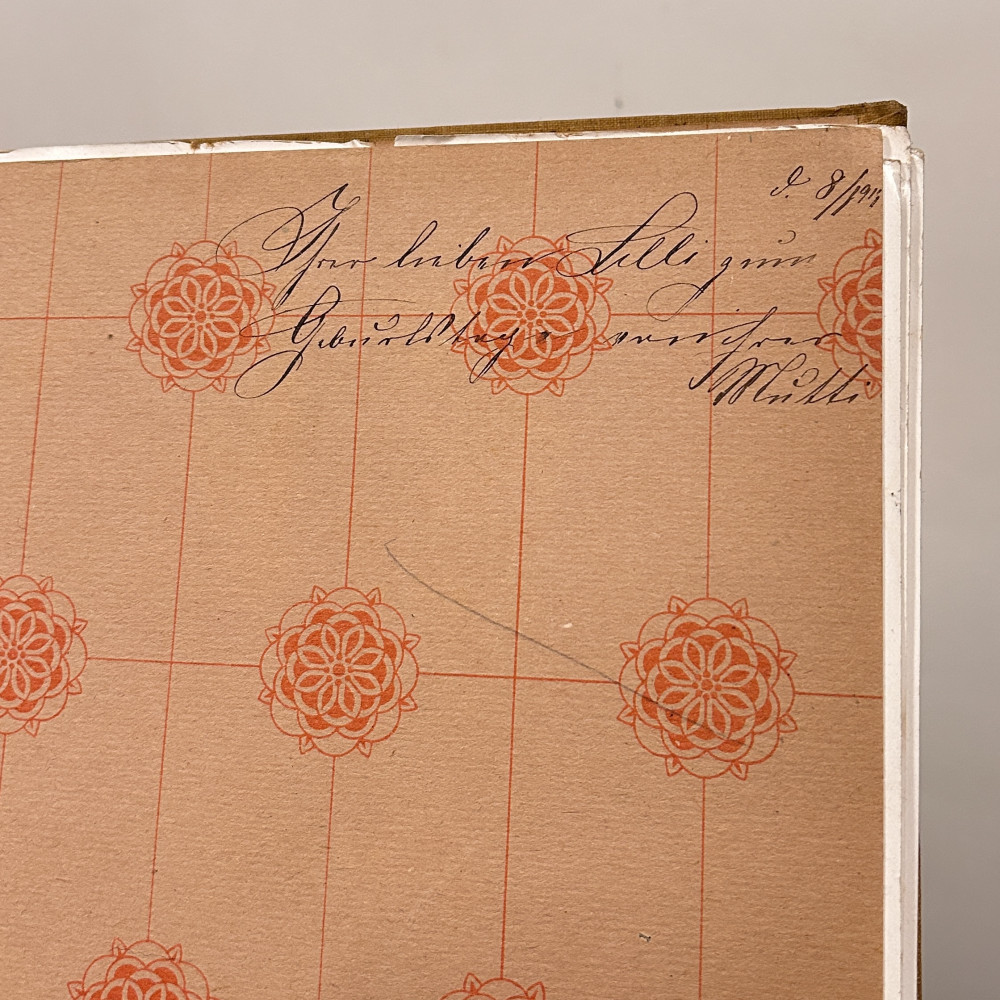 d. 8/1911
Ihrer lieben Lilli zum
Geburtstage von ihrer
Mutti